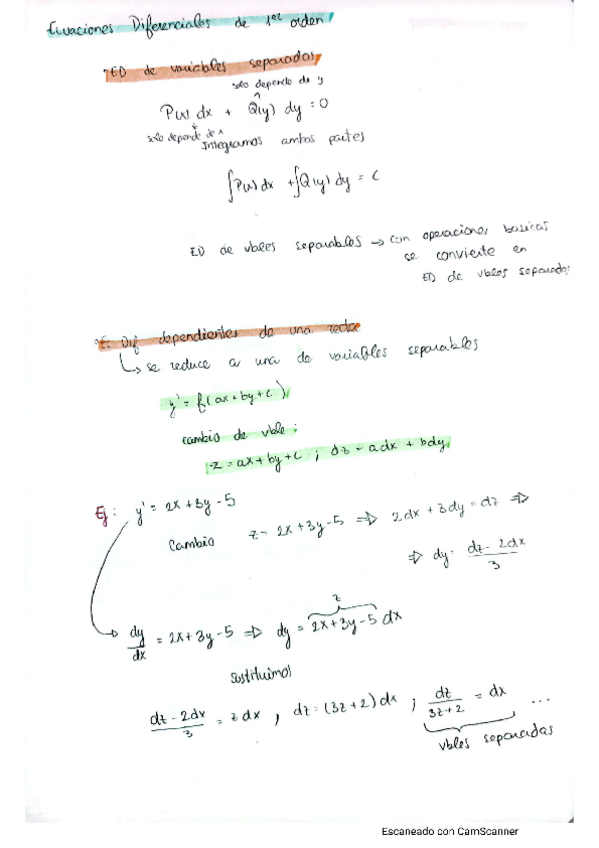 Ecuaciones Diferenciales de 1er orden
*ED de variables separadas
solo depende de y
P(x) dx + Q(y) dy = 0
solo depende de x
Integramos ambas partes
∫P(x) dx + ∫Q(y) dy = C
ED de vbles separables → con operaciones basicas
se convierte en
ED de vbles separadas
*E. Dif dependientes de una recta
↳ se reduce a una de variables separables
y' = f(ax+by+c)
cambio de vble:
z = ax+by+c ; dz = adx + bdy
Ej: y' = 2x+3y-5
Cambio z = 2x+3y-5 ⇒ 2dx + 3dy = dz ⇒
⇒ dy = (dz - 2dx)/3
z
dy/dx = 2x+3y-5 ⇒ dy = 2x+3y-5 dx
sustituimos
(dz - 2dx)/3 = z dx , dz = (3z+2) dx ; dz/(3z+2) = dx ...
vbles separadas
Escaneado con CamScanner